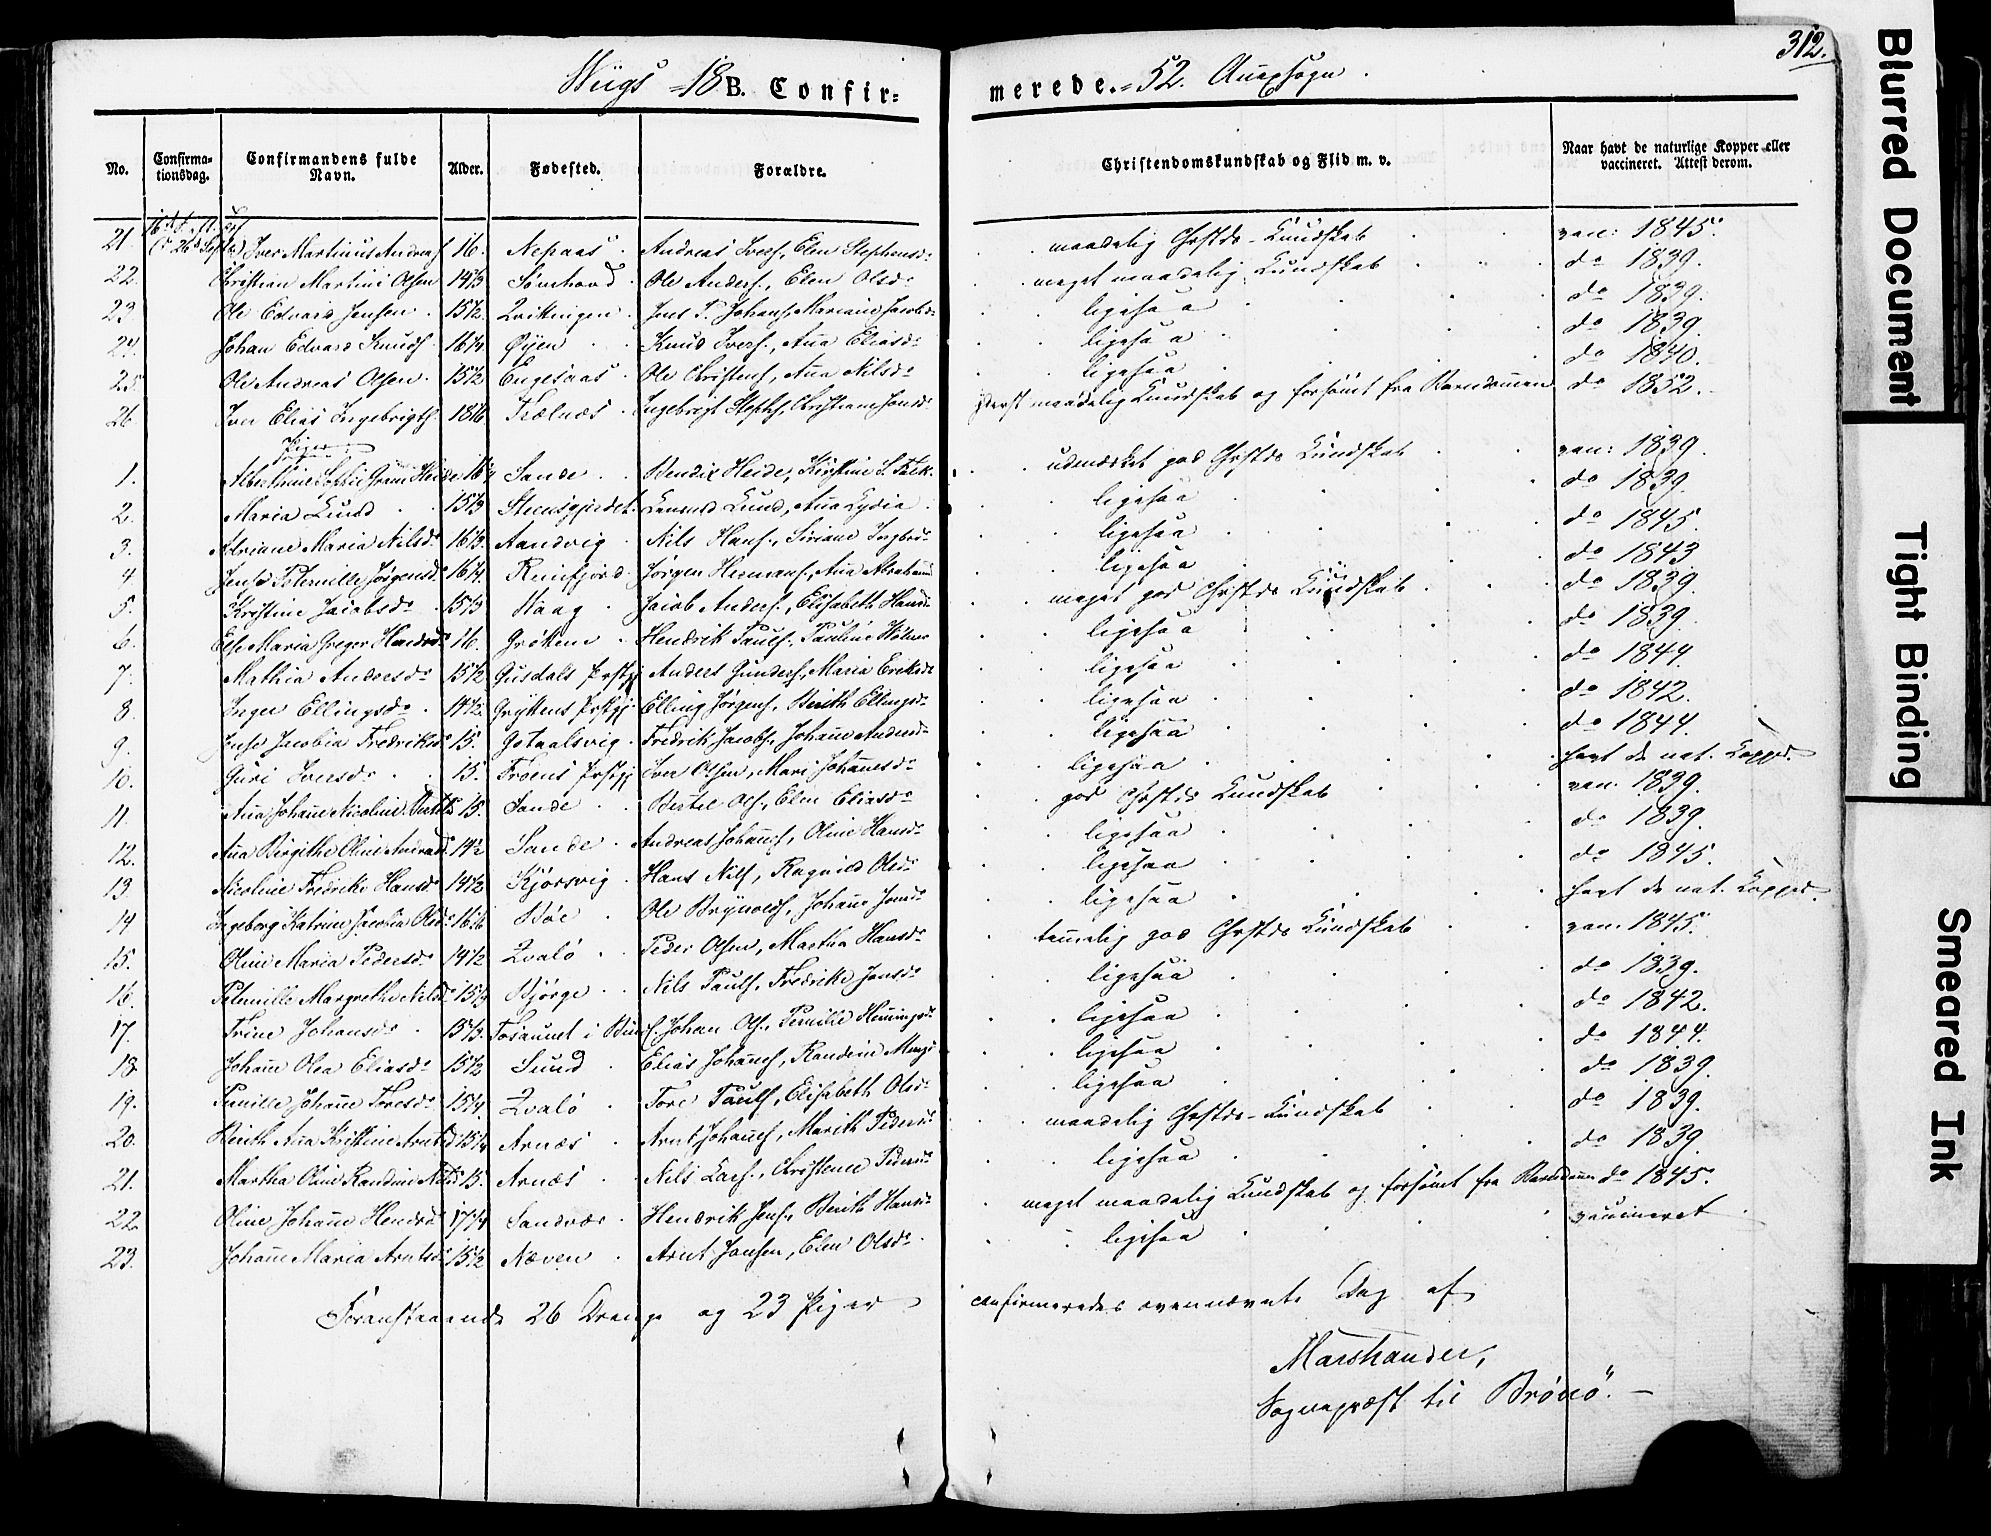 312.
Wiigs 18 B. Confirmerede. 52. Anexsogn.
No. Confirmationsdag. Confirmandens fulde Navn. Alder. Fødested. Forældre. Christendomskundskab og Flid m. v. Naar havt de naturlige Kopper eller vaccineret. Attest derom.
21. (d 26d Septbr) Iver Martinus Andreas 16. Andreas Ivers., Elen Stephensd. maadelig Chrstds-Kundskab vac: 1845.
22. Christian Martin Olsen 14 1/3 Ole Anders., Elen Olsd. meget maadelig Kundskab do 1839.
23 Ole Edvard Jensen 15 1/2 Jens P. Johans., Mariane Jacobsd. ligesaa do 1839.
24. Johan Edvard Knuds. Øyen Knud Ivers., Ana Eliasd. ligesaa do 1839.
25 Ole Andreas Olsen 15 1/2 Engesaas Ole Christens., Ana Nilsd. ligesaa do 1840.
26 Iver Elias Ingebrigts. Trælnæs Ingebrigt Stephs., Christiane Jonsd. yderst maadelig Kundskab og forsømt fra Barndommen do 1852.
Piger
1. Albertine Sophie Gram Heide Sande Bendix Heide, Kirstine S. Falk. udmærket god Chrstds Kundskab vac: 1839.
2. Maria Lund 15 1/3 Steensgjerdet Lund, Ana Lydia ligesaa do 1839.
3. Adriane Maria Nilsd. 16 1/3 Aandvig Nils Hans., Siriane Ingbrd. ligesaa do 1845.
4. Jensp Peternille Jørgensd. 16 1/4 Jørgen Hermans., Ana Abrahamsd. ligesaa do 1843
5. Kristine Jacobsd. 15 1/3 Haag Jacob Anders., Elisabeth Hansd. meget god Chrstds Kundskab do 1839.
6. Else Maria Greger Hendrd. 16. Hendrik Pauls., Pauline ligesaa do 1839.
7. Mathia Andersd. 15 1/2 Gusdals Prstgj. Anders Gunders., Maria Eriksd. ligesaa do 1844.
8. Inger Ellingsd. 14 1/2 Gryttens Prstgj. Elling Jørgens., Berith Ellingsd. ligesaa do 1842.
9. Jensp Jacobia Fredriksd. 15. Gotaalsvig Fredrik Jacobs., Johane Andersd. ligesaa do 1844.
10. Guri Iversd. 15. Froens Prstgj. Iver Olsen, Mari Johanesd. ligesaa havt de nat. Kopper.
11. Ana Johane Nicoline Bertelsd. 15. Sande Bertel Ols., Elen Eliasd. god Chrstds Kundskab vac. 1839.
12. Ana Birgithe Oline Andread. 14 1/2 Sande Andreas Johans., Oline Hansd. ligesaa do 1839.
13 Nicoline Fredrike Hansd. 14 1/2 Kjørsvig Hans Nils., Ragnild Olsd. ligesaa do 1845.
14 Ingeborg Katrine Jacobia Olsd. Bøe Ole Brynolds., Johane Jonsd. ligesaa havt de nat. Kopper.
15. Oline Maria Pedersd. 14 1/2 Qvalø Peder Olsen, Martha Hansd. temmelig god Chrstds Kundskab vac. 1845.
16. Peternille Margrethe Nilsd. 15 1/3 Bjørge Nils Pauls., Fredrike Jensd. ligesaa do 1839.
17. Trine Johansd. 15 1/3 Johan Ols., Pernille Hemingsd. ligesaa do 1842.
18. Johane Olea Eliasd. 15 1/2 Sund Elias Johans., Randine ligesaa do 1844.
19. Pernille Johane Toresd. 15 1/4 Qvalø Tore Pauls., Elisabeth Olsd. ligesaa do 1839.
20. Berith Ana Kristine Arntsd. 15 1/4 Arnæs Arnt Johans., Marith Pedersd. maadelig Chrstds-Kundskab do 1839.
21. Martha Oline Randine Nilsd. 15. Arnæs Nils Lars., Christence Pedersd. ligesaa do 1839.
22 Oline Johane Hendrd. 17 1/4 Sandvær Hendrik Jens., Berith Hansd. meget maadelig Kundskab og forsømt fra Barndommen do 1845.
23. Johane Maria Arntsd. 15 1/2 Næven Arnt Jansen, Elen Olsd. ligesaa vaccineret
Foranstaaende 26 Drenge og 23 Piger confirmeredes ovennævnte Dag af
Marshander,
Sognepræst til Brønø.
Blurred Document
Tight Binding
Smeared Ink